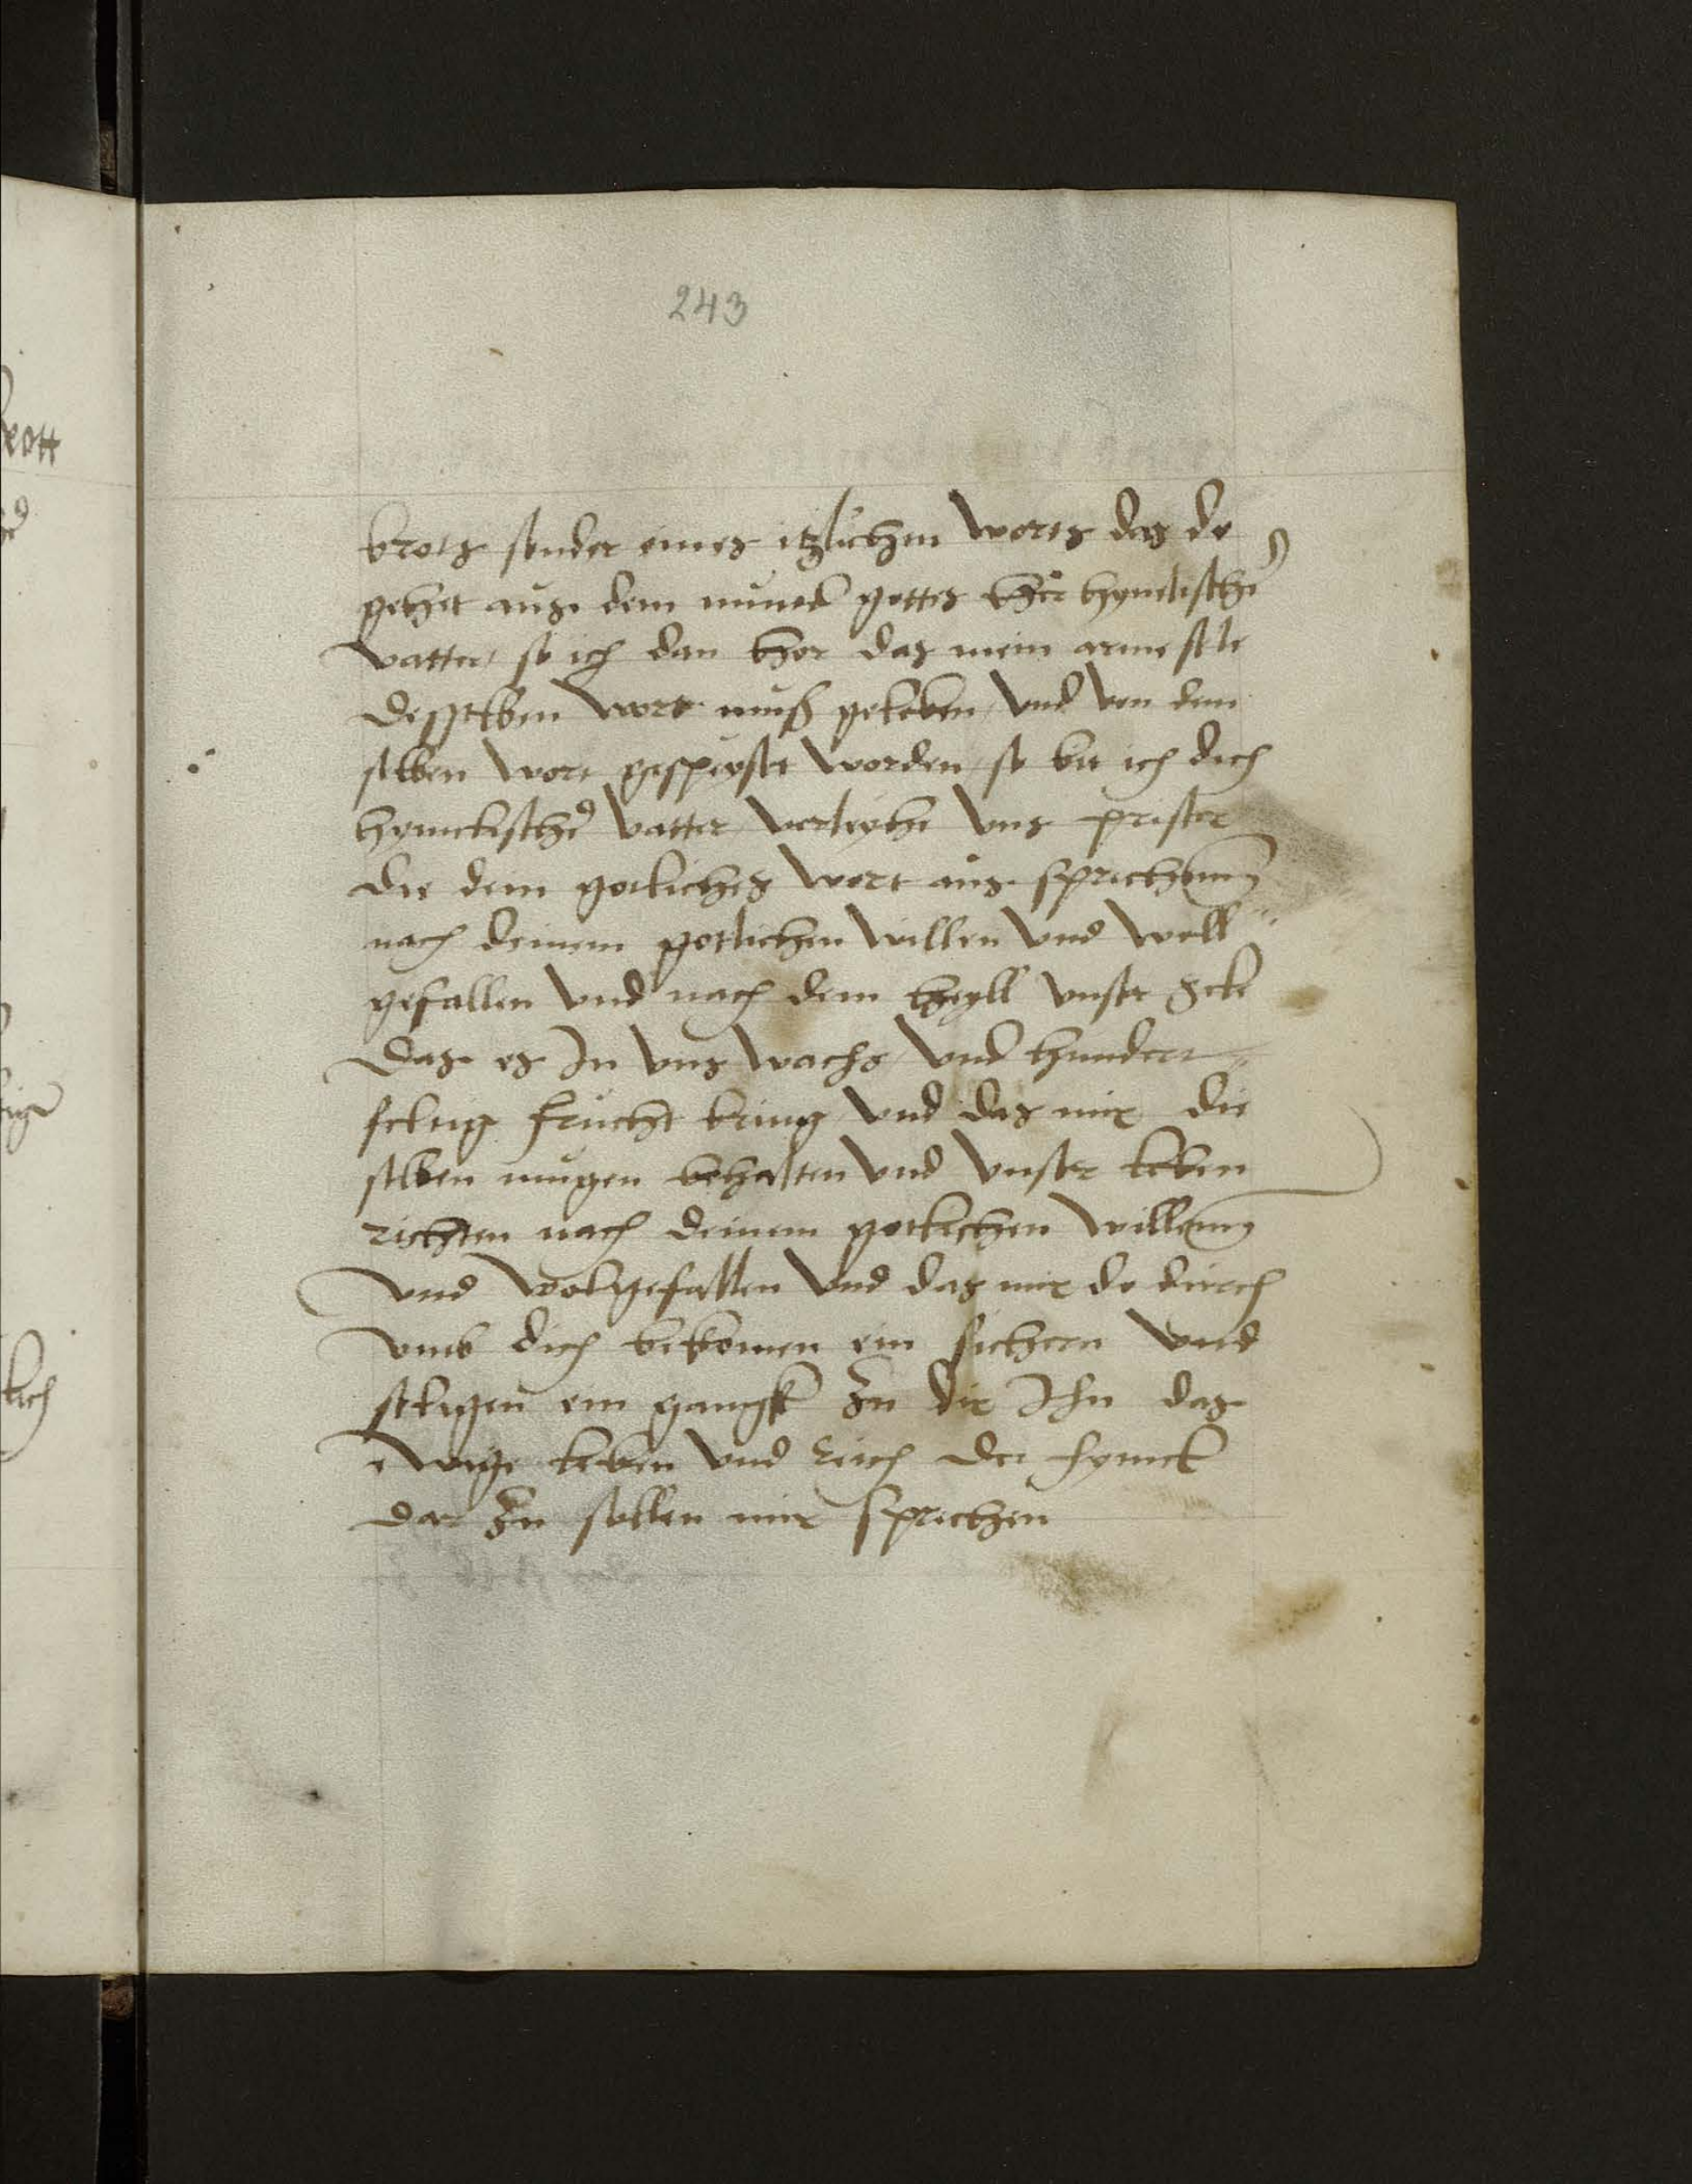 243
brots sonder eines itzlichen worts das do
gehet aus dem mund gottes her hymelischer
vatter so ich dan hor das mein arme sele
desselben wort muß geleben und von dem
selben wort gespeyset worden so bit ich dich
hymelischer vatter verleyhe uns prister
die dein gotliches wort aus sprechenn
nach deinem gotlichen willen und woll
gefallen und nach dem heyll unser Sele
das es In uns wachs und hundert
feltig frucht bring und das mir die
selben mugen behalten und unser leben
richten nach deinem gotlichen willenn
und wolgefallen und das mir do durch
umb dich bekomen ein sichern und
seligen ein gangk zu dir Ihn das
ewige leben und reich der hymel
dar zu sollen mir sprechen